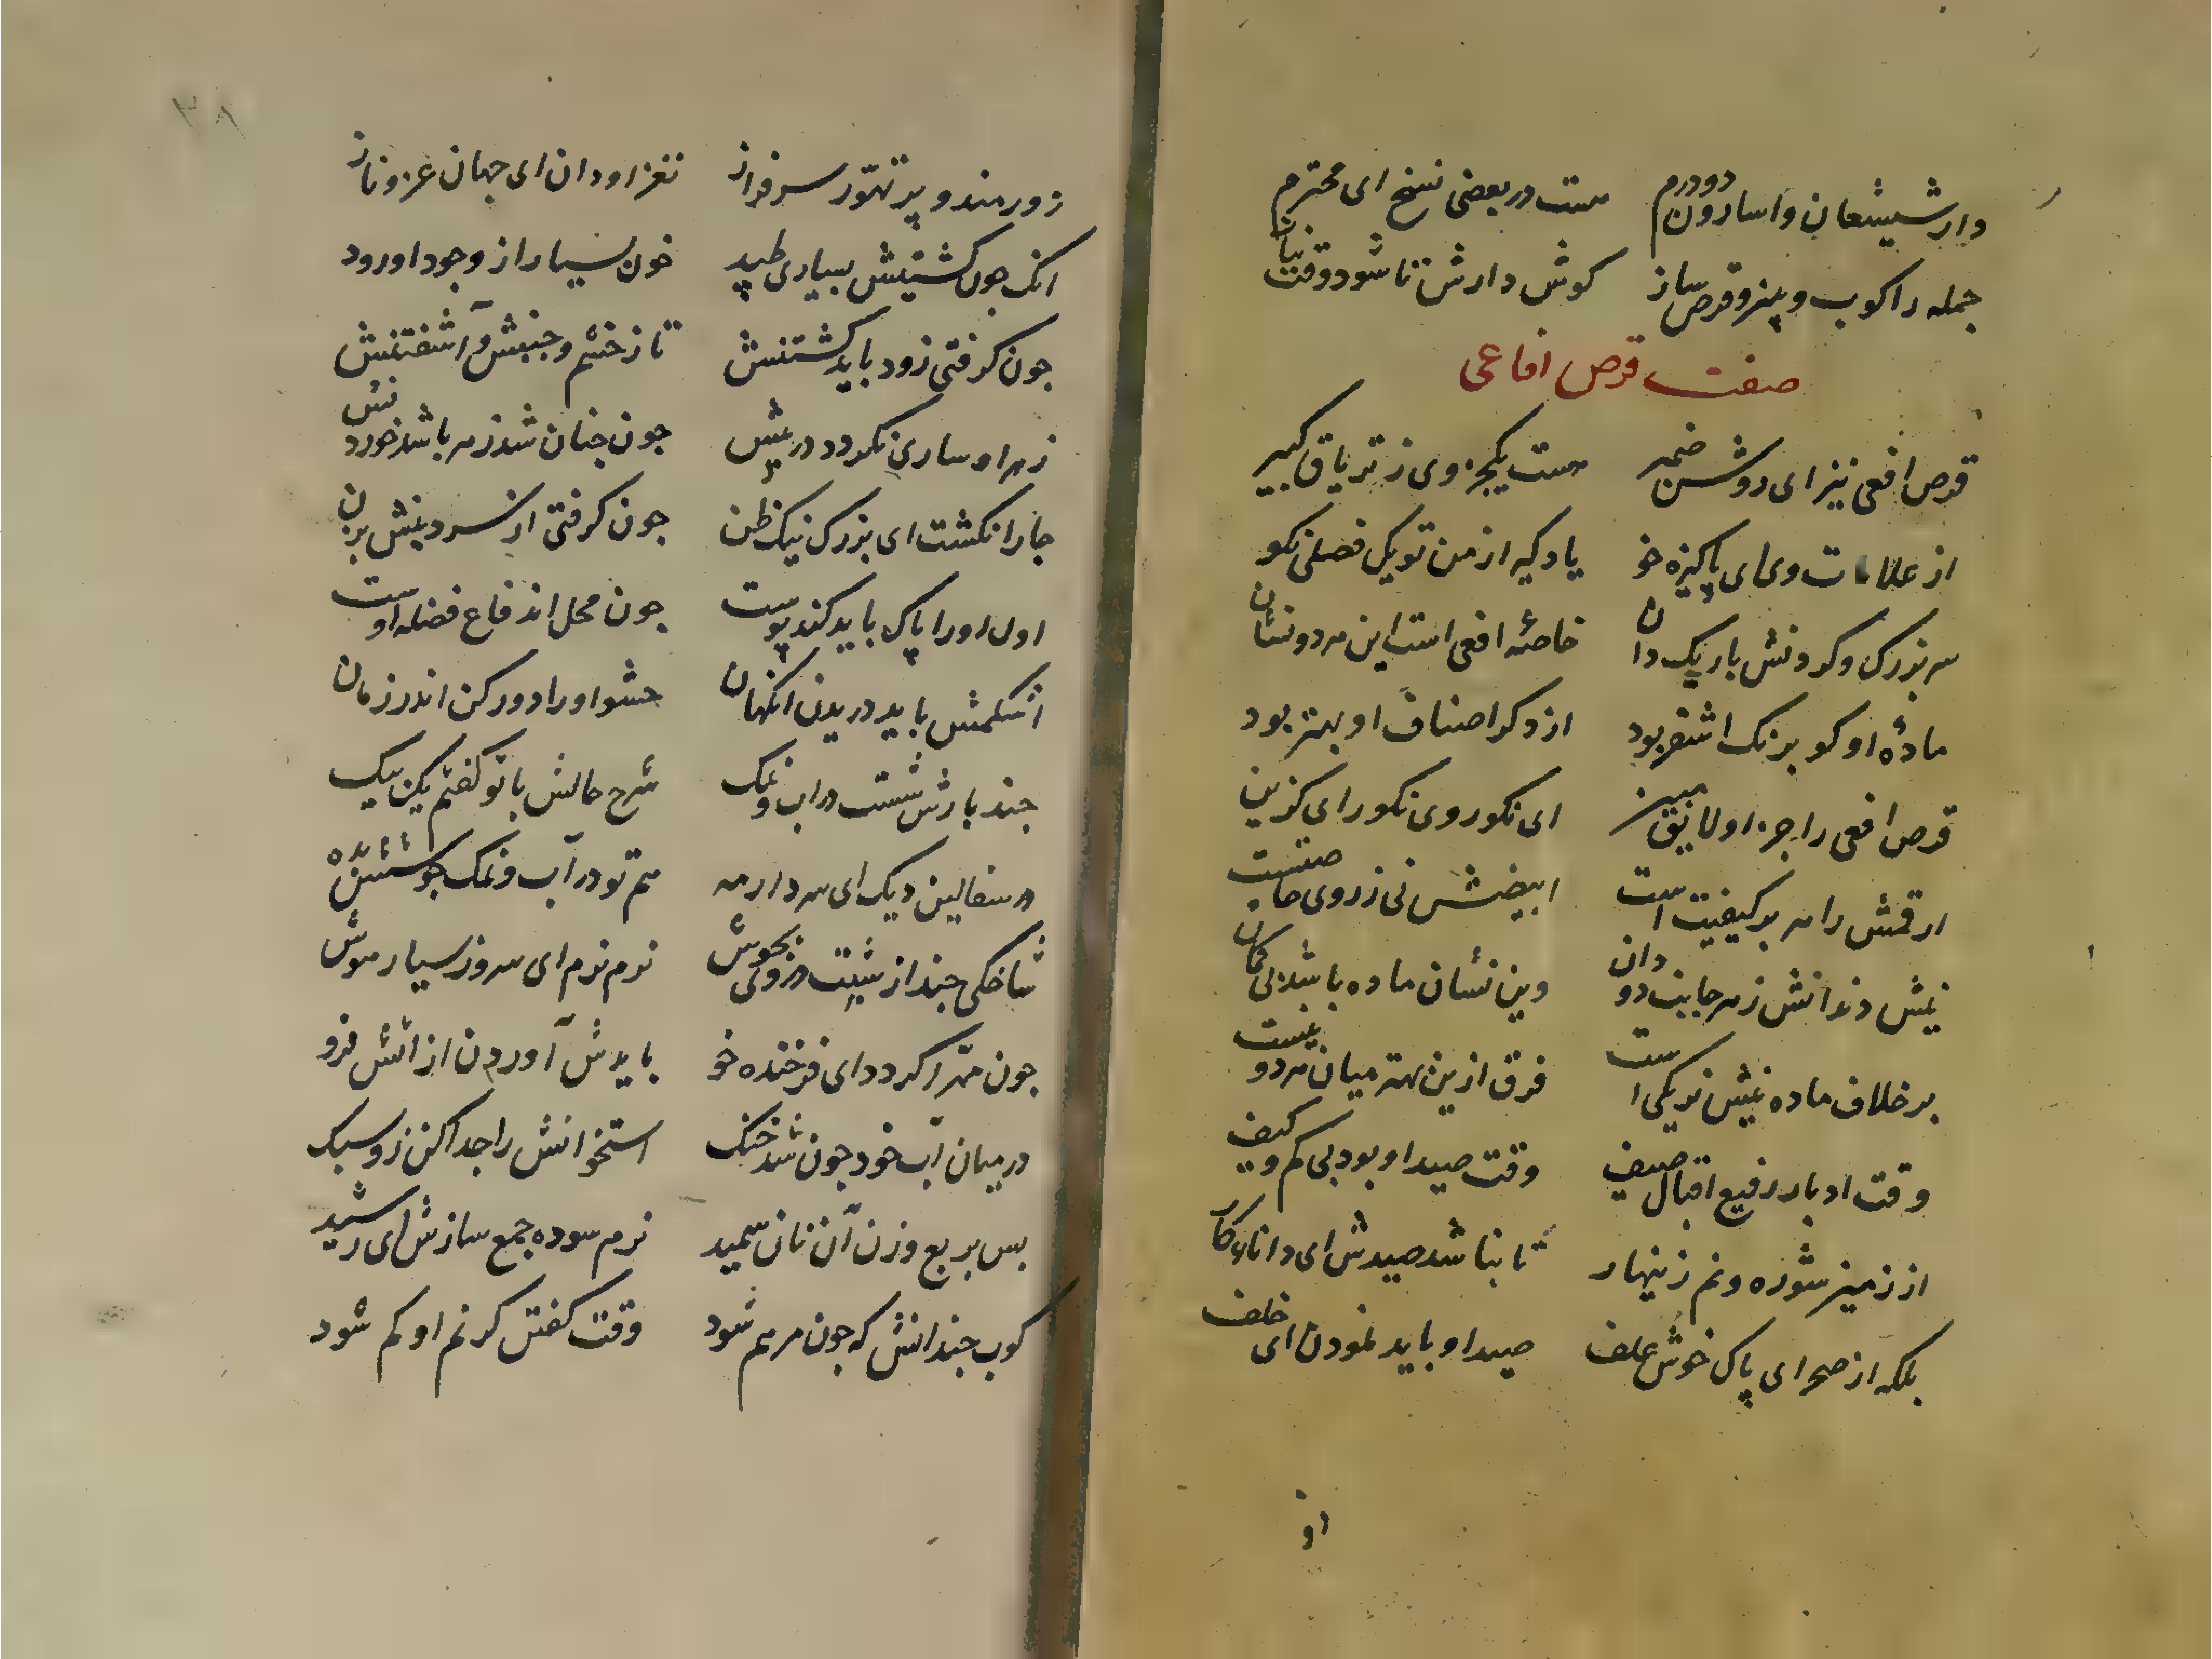 دارشیشعان واسارون دودرم هست در بعضی نسخ ای محترم
جمله راکوب و بپزو قرص ساز کوش دارش تا شود وقت نیاز
صفت قرص افاعی
قرص افعی نیز ای روشن ضمیر هست یکجزوی ز تریاق کبیر
از علامات وی ای پاکیزه خو یاد گیر از من تو یک فصلی نکو
سر بزرک و کردنش باریک دان خاصهٔ افعی است این هر دو نشان
مادهٔ او کو برنک اشقر بود از دکر اصناف او بهتر بود
قرص افعی را جزاو لایق مبین ای نکو روی نکو رای کزین
ارقمش را هر بد کیفیت است ابیضش نی زروی خاصیت
نیش دندانش زهر جانب دو دان وین نشان ماده باشد بی کمان
بر خلاف ماده نیش نر یکی است فرق ازین بهتر میان هردو نیست
وقت ادبار ربیع اقبال صیف وقت صید او بود بی کم و کیف
از زمین شوره و نم زینهار تا نباشد صیدش ای دانای کار
بلکه از صحرای پاک خوش علف صید او باید نمودن ای خلف
او
۳۸
زورمند و پر تهوّر سرفراز نغز او دان ای جهان عز و ناز
انک جون کشتیش بسیاری طپید خون بسیار از وجود او رود
جون کرفتی زود باید کشتنش تا زخشم و جنبش و آشفتنش
زهر او ساری نکردد در عیش جون جنان شد زهر باشد خوردنش
جار انکشت ای بزرک نیک ظن جون کرفتی از سر و نیش بزن
اول او را پاک باید کند پوست جون محل اندفاع فضله اوست
اشکمش باید دریدن انکهان حشو او را دور کن اندر زمان
جند بارش شست در اب و نمک شرح حالش با تو کفتم یک بیک
در سفالین دیک ای سردار مه هم تو در آب و نمک جوشش بده
شاخکی جند از شبت در وی بجوش نرم نرم ای سروز بسیار هوش
جون مهرّا کردد ای فرخنده خو بایدش آوردن از آتش فرو
در میان آب خود جون شد خنک استخوانش را جدا کن زو سبک
بس بربع وزن آن نان سمید نرم سوده جمع سازش ای رشید
کوب جندانش که جون مرهم شود وقت کفتن کرنم او کم شود